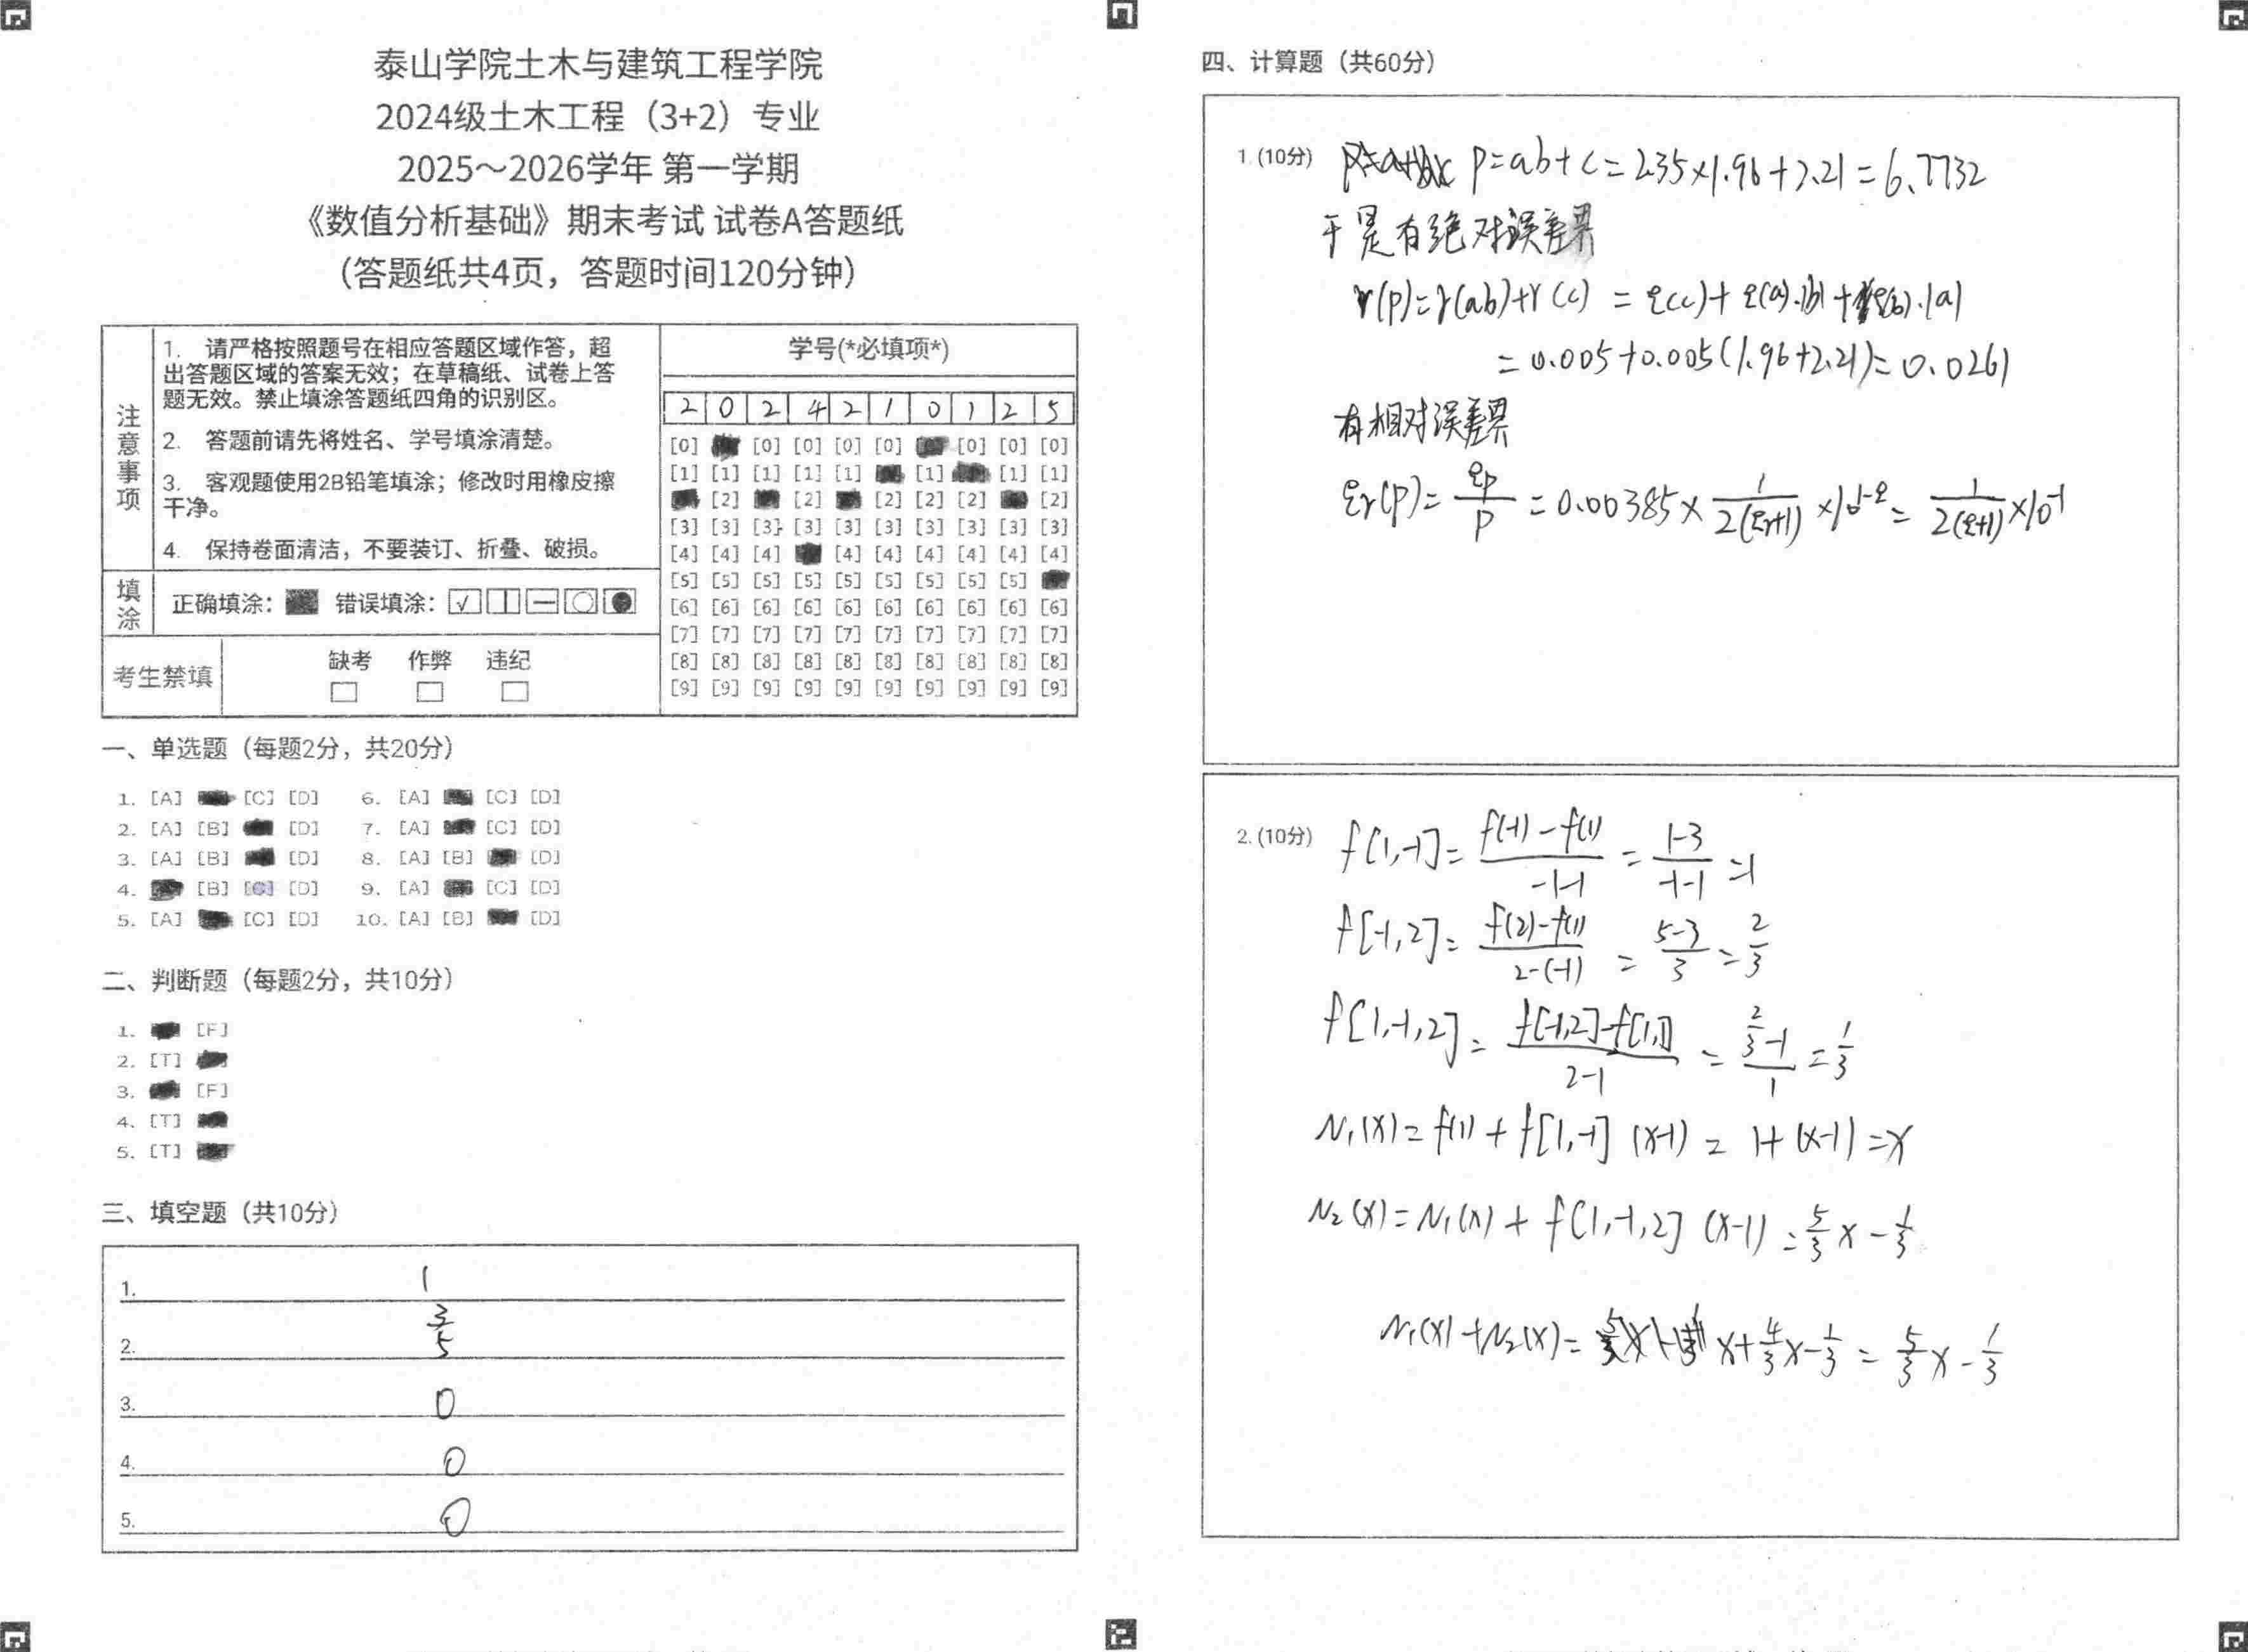 泰山学院土木与建筑工程学院
2024级土木工程（3+2）专业
2025～2026学年 第一学期
《数值分析基础》期末考试 试卷A答题纸
（答题纸共4页，答题时间120分钟）
注意事项
1. 请严格按照题号在相应答题区域作答，超
出答题区域的答案无效；在草稿纸、试卷上答
题无效。禁止填涂答题纸四角的识别区。
2. 答题前请先将姓名、学号填涂清楚。
3. 客观题使用2B铅笔填涂；修改时用橡皮擦
干净。
4. 保持卷面清洁，不要装订、折叠、破损。
填涂
正确填涂： 错误填涂：
考生禁填
缺考 作弊 违纪
学号(*必填项*)
2 0 2 4 2 1 0 1 2 5
[0] [0] [0] [0] [0] [0] [0] [0]
[1] [1] [1] [1] [1] [1] [1] [1]
[2] [2] [2] [2] [2] [2]
[3] [3] [3] [3] [3] [3] [3] [3] [3] [3]
[4] [4] [4] [4] [4] [4] [4] [4] [4]
[5] [5] [5] [5] [5] [5] [5] [5] [5]
[6] [6] [6] [6] [6] [6] [6] [6] [6] [6]
[7] [7] [7] [7] [7] [7] [7] [7] [7] [7]
[8] [8] [8] [8] [8] [8] [8] [8] [8] [8]
[9] [9] [9] [9] [9] [9] [9] [9] [9] [9]
一、单选题（每题2分，共20分）
1. [A] [C] [D] 6. [A] [C] [D]
2. [A] [B] [D] 7. [A] [C] [D]
3. [A] [B] [D] 8. [A] [B] [D]
4. [B] [C] [D] 9. [A] [C] [D]
5. [A] [C] [D] 10. [A] [B] [D]
二、判断题（每题2分，共10分）
1. [F]
2. [T]
3. [F]
4. [T]
5. [T]
三、填空题（共10分）
1. 1
2. 3/5
3. 0
4. 0
5. 0
四、计算题（共60分）
1.(10分) p=ab+c=2.35×1.96+2.21=6.7732
于是有绝对误差界
r(p)=r(ab)+r(c) = ε(c)+ε(a)·|b|+ε(b)·|a|
=0.005+0.005(1.96+2.21)=0.0261
有相对误差界
εr(p)=εp/p=0.00385×1/2(εr+1)×10^1-2=1/2(ε+1)×10^-1
2.(10分) f[1,-1]=f(-1)-f(1)/-1-1=1-3/-1-1=1
f[-1,2]=f(2)-f(1)/2-(-1)=5-3/3=2/3
f[1,-1,2]=f[-1,2]-f[1,1]/2-1=2/3-1/1=1/3
N₁(x)=f(1)+f[1,-1](x-1)=1+(x-1)=x
N₂(x)=N₁(x)+f[1,-1,2](x-1)=5/3x-1/3
N₁(x)+N₂(x)= x+4/3x-1/3=5/3x-1/3